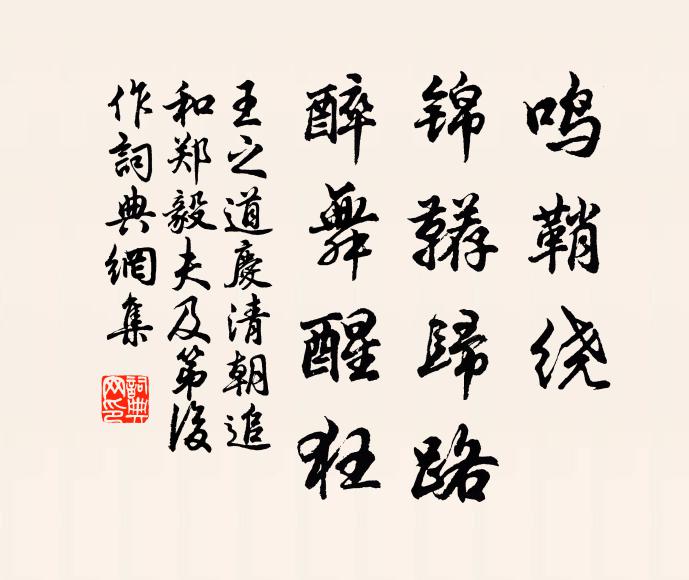 鸣鞘绕
锦鞯归路
醉舞醒狂
王之道慶清朝追
和郑毅夫及第後
作詞典網集
詞典網印